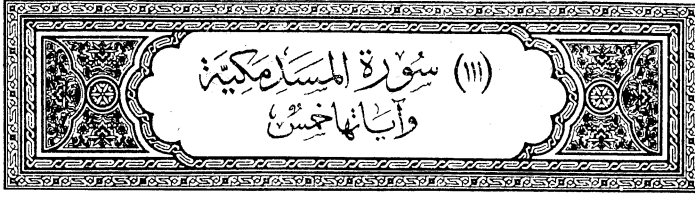 (١١١) سُورَة المَسَد مَكيَّة
وَآيَاتهَا خَمسٌ